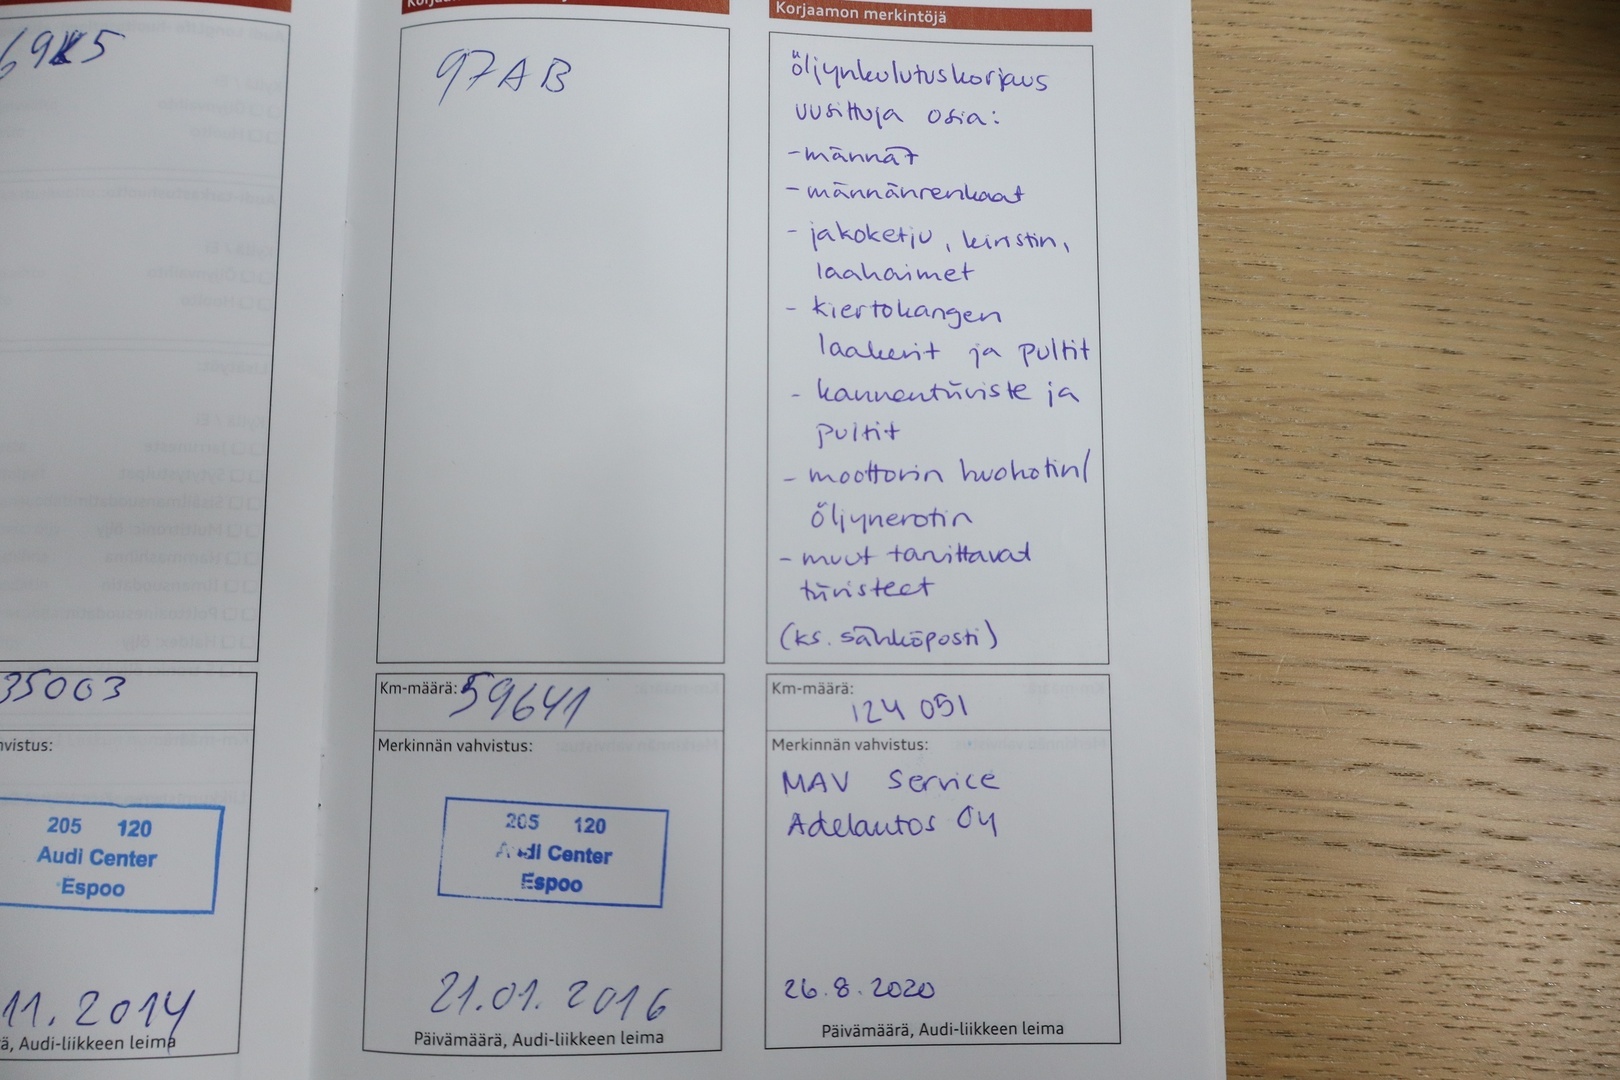 35003
vistus:
205 120
Audi Center
Espoo
11.2014
Audi-liikkeen leima
97AB
Km-määrä: 59641
Merkinnän vahvistus:
205 120
Audi Center
Espoo
21.01.2016
Päivämäärä, Audi-liikkeen leima
Korjaamon merkintöjä
öljynkulutuskorjaus
uusittuja osia:
- männät
- männänrenkaat
- jakoketju, kiristin,
laahaimet
- kiertokangen
laakerit ja pultit
- kannentiiviste ja
pultit
- moottorin huohotin/
öljynerotin
- muut tarvittavat
tiivisteet
(ks. sähköposti)
Km-määrä:
124 051
Merkinnän vahvistus:
MAV Service
Adelautos Oy
26.8.2020
Päivämäärä, Audi-liikkeen leima